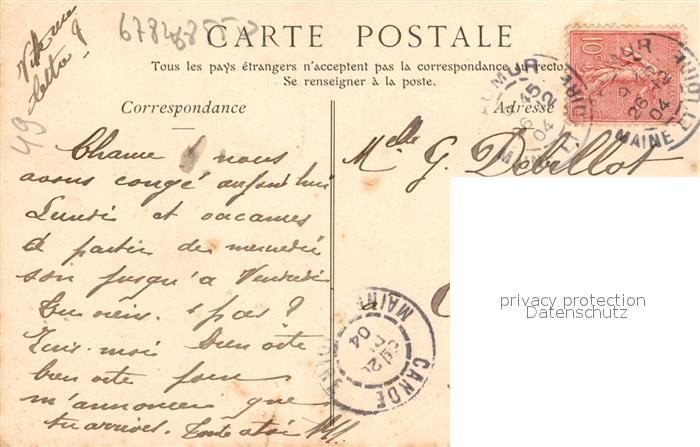 Vite une
lettre !
678468557
CARTE POSTALE
Tous les pays étrangers n'acceptent pas la correspondance au recto.
Se renseigner à la poste.
Correspondance
Adresse
49
Chance ! nous
avons congé aujourd'hui
Lundi et vacances
à partir de mercredi
soir jusqu'à Vendredi
Tu viens, s pas ?
Ecris-moi bien vite
bien vite pour
m'annoncer que
tu arrives. Toute à toi
Melle G. Debillot
10
SAUMUR
26 12
04
MAINE ET LOIRE
CANDÉ
MAINE
04
privacy protection
Datenschutz